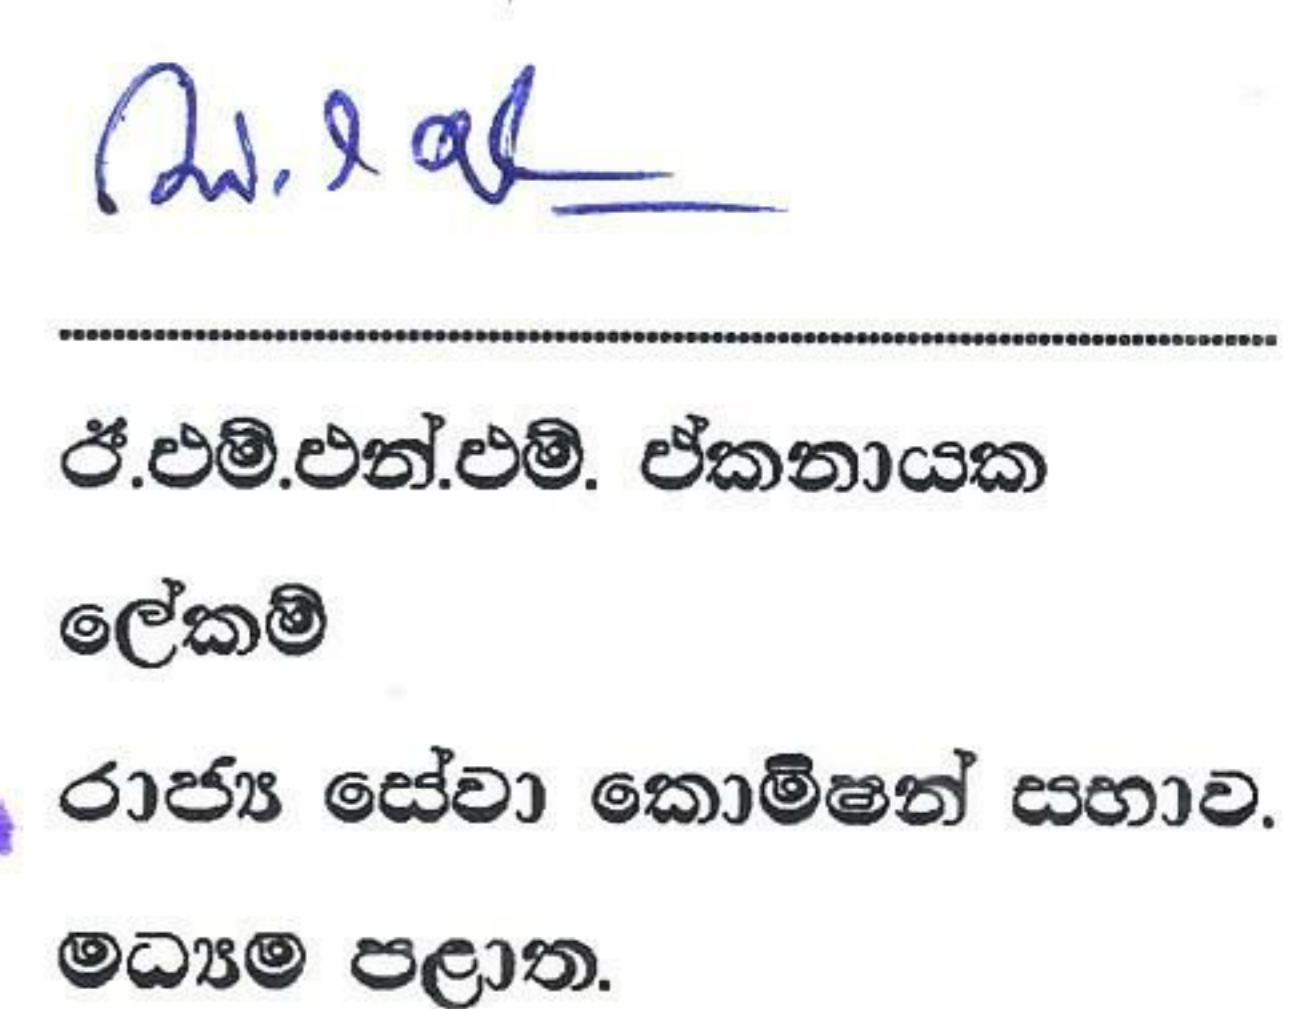 ඊ.එම්.එන්.එම්. ඒකනායක
ලේකම්
රාජ්‍ය සේවා කොමිෂන් සභාව.
මධ්‍යම පළාත.